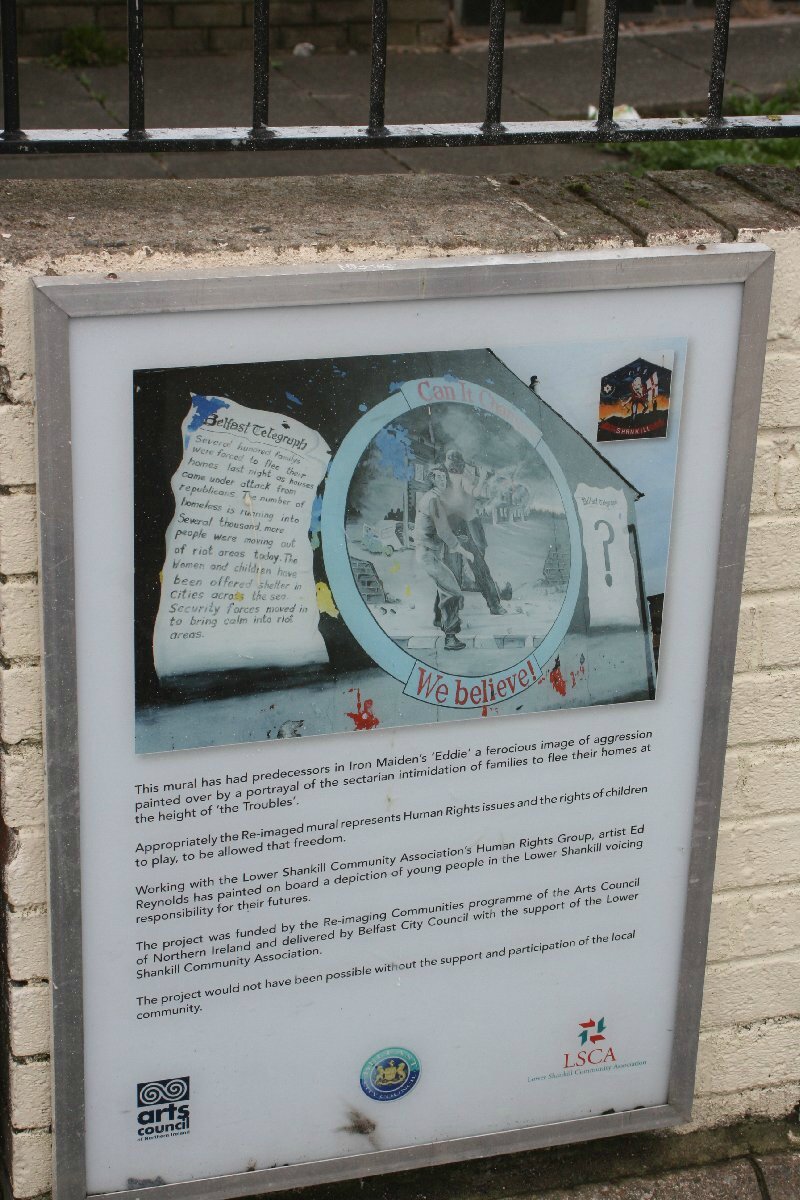 Belfast Telegraph
Several hundred families
were forced to flee their
homes last night as houses
came under attack from
republicans. The number of
homeless is running into
Several thousand, more
people were moving out
of riot areas today. The
Women and children have
been offered shelter in
Cities across the sea.
Security forces moved in
to bring calm into riot
areas.
Can It
We believe!
Belfast Telegraph
?
SHANKILL
This mural has had predecessors in Iron Maiden's 'Eddie' a ferocious image of aggression
painted over by a portrayal of the sectarian intimidation of families to flee their homes at
the height of 'the Troubles'.
Appropriately the Re-imaged mural represents Human Rights issues and the rights of children
to play, to be allowed that freedom.
Working with the Lower Shankill Community Association's Human Rights Group, artist Ed
Reynolds has painted on board a depiction of young people in the Lower Shankill voicing
responsibility for their futures.
The project was funded by the Re-imaging Communities programme of the Arts Council
of Northern Ireland and delivered by Belfast City Council with the support of the Lower
Shankill Community Association.
The project would not have been possible without the support and participation of the local
community.
arts
council
of Northern Ireland
BELFAST
CITY COUNCIL
LSCA
Lower Shankill Community Association